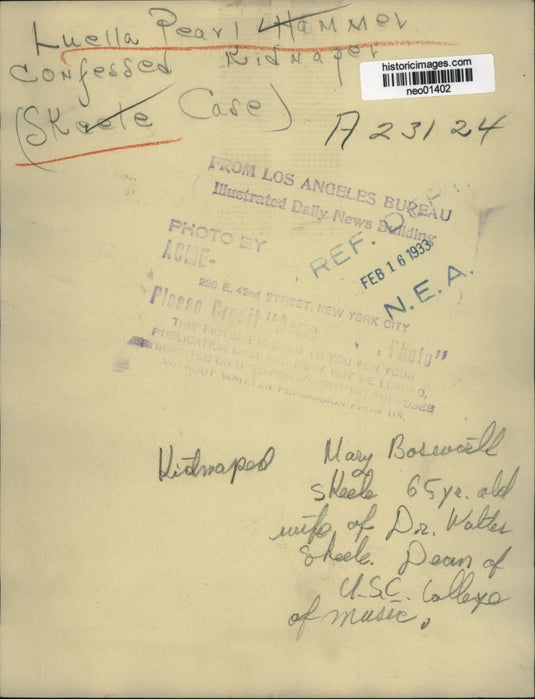 Luella Pearl Hammer
Confessed Kidnaper
(Skeele Case)
historicimages.com
neo01402
A 23124
FROM LOS ANGELES BUREAU
Illustrated Daily News Building
REF. DEPT.
FEB 16 1933
N.E.A.
PHOTO BY
ACME-
220 E. 42nd STREET, NEW YORK CITY
Please Credit "Acme Photo"
THIS PICTURE IS SOLD TO YOU FOR YOUR
PUBLICATION ONLY AND MUST NOT BE LOANED,
SYNDICATED OR USED FOR ADVERTISING PURPOSES
WITHOUT WRITTEN PERMISSION FROM US.
Kidnaped Mary
Skeele 65 yr. old
wife of Dr. Walter
Skeele. Dean of
U.S.C. College
of music.